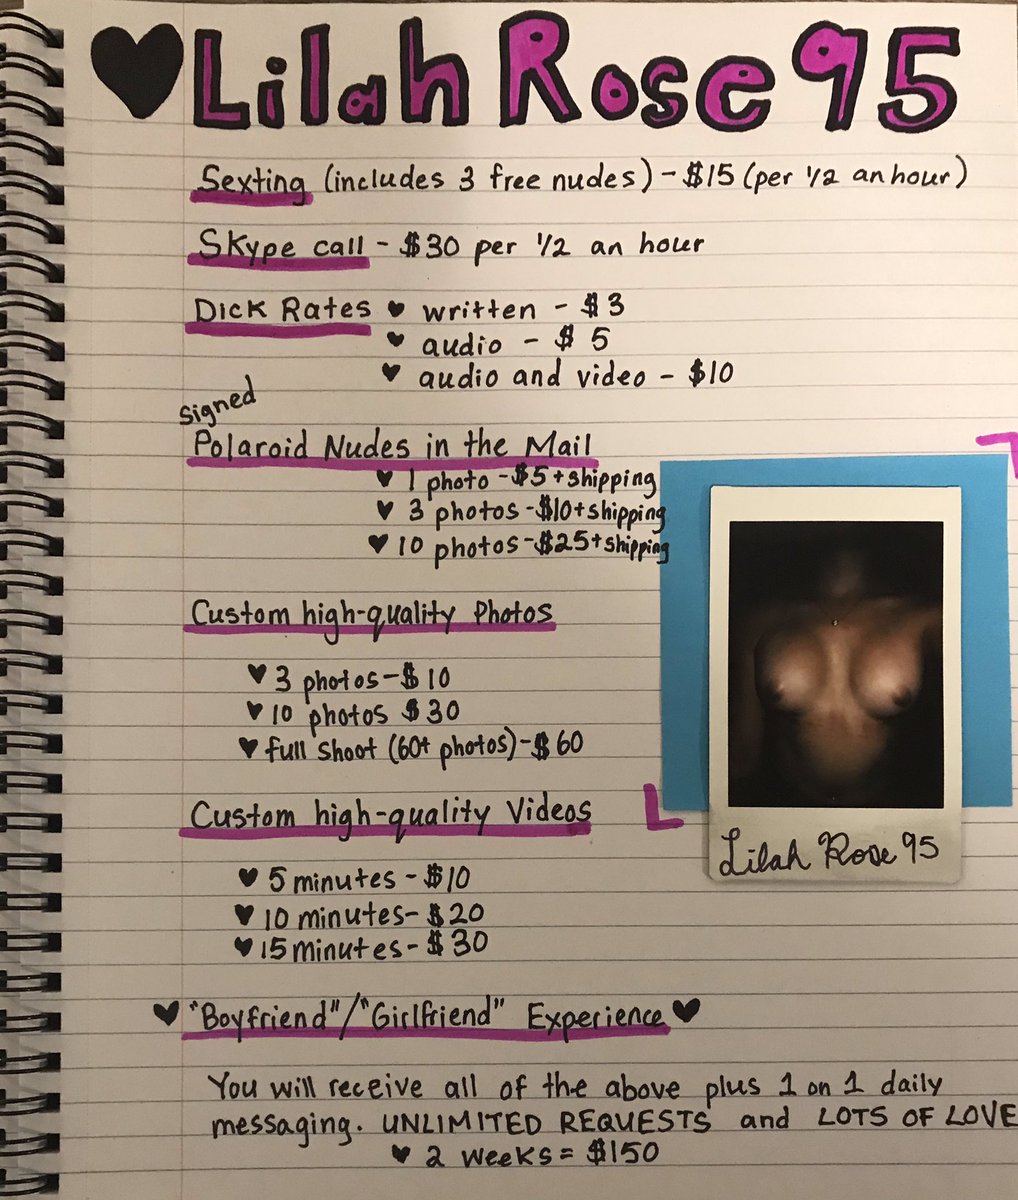 ♥ Lilah Rose 95
Sexting (includes 3 free nudes) - $15 (per 1/2 an hour)
Skype call - $30 per 1/2 an hour
Dick Rates ♥ written - $3
♥ audio - $5
♥ audio and video - $10
signed
Polaroid Nudes in the Mail
♥ 1 photo - $5 + shipping
♥ 3 photos - $10 + shipping
♥ 10 photos - $25 + shipping
Custom high-quality Photos
♥ 3 photos - $10
♥ 10 photos $30
♥ full shoot (60+ photos) - $60
Custom high-quality Videos
♥ 5 minutes - $10
♥ 10 minutes - $20
♥ 15 minutes - $30
Lilah Rose 95
♥ "Boyfriend"/"Girlfriend" Experience ♥
You will receive all of the above plus 1 on 1 daily
messaging. UNLIMITED REQUESTS and LOTS OF LOVE
♥ 2 weeks = $150